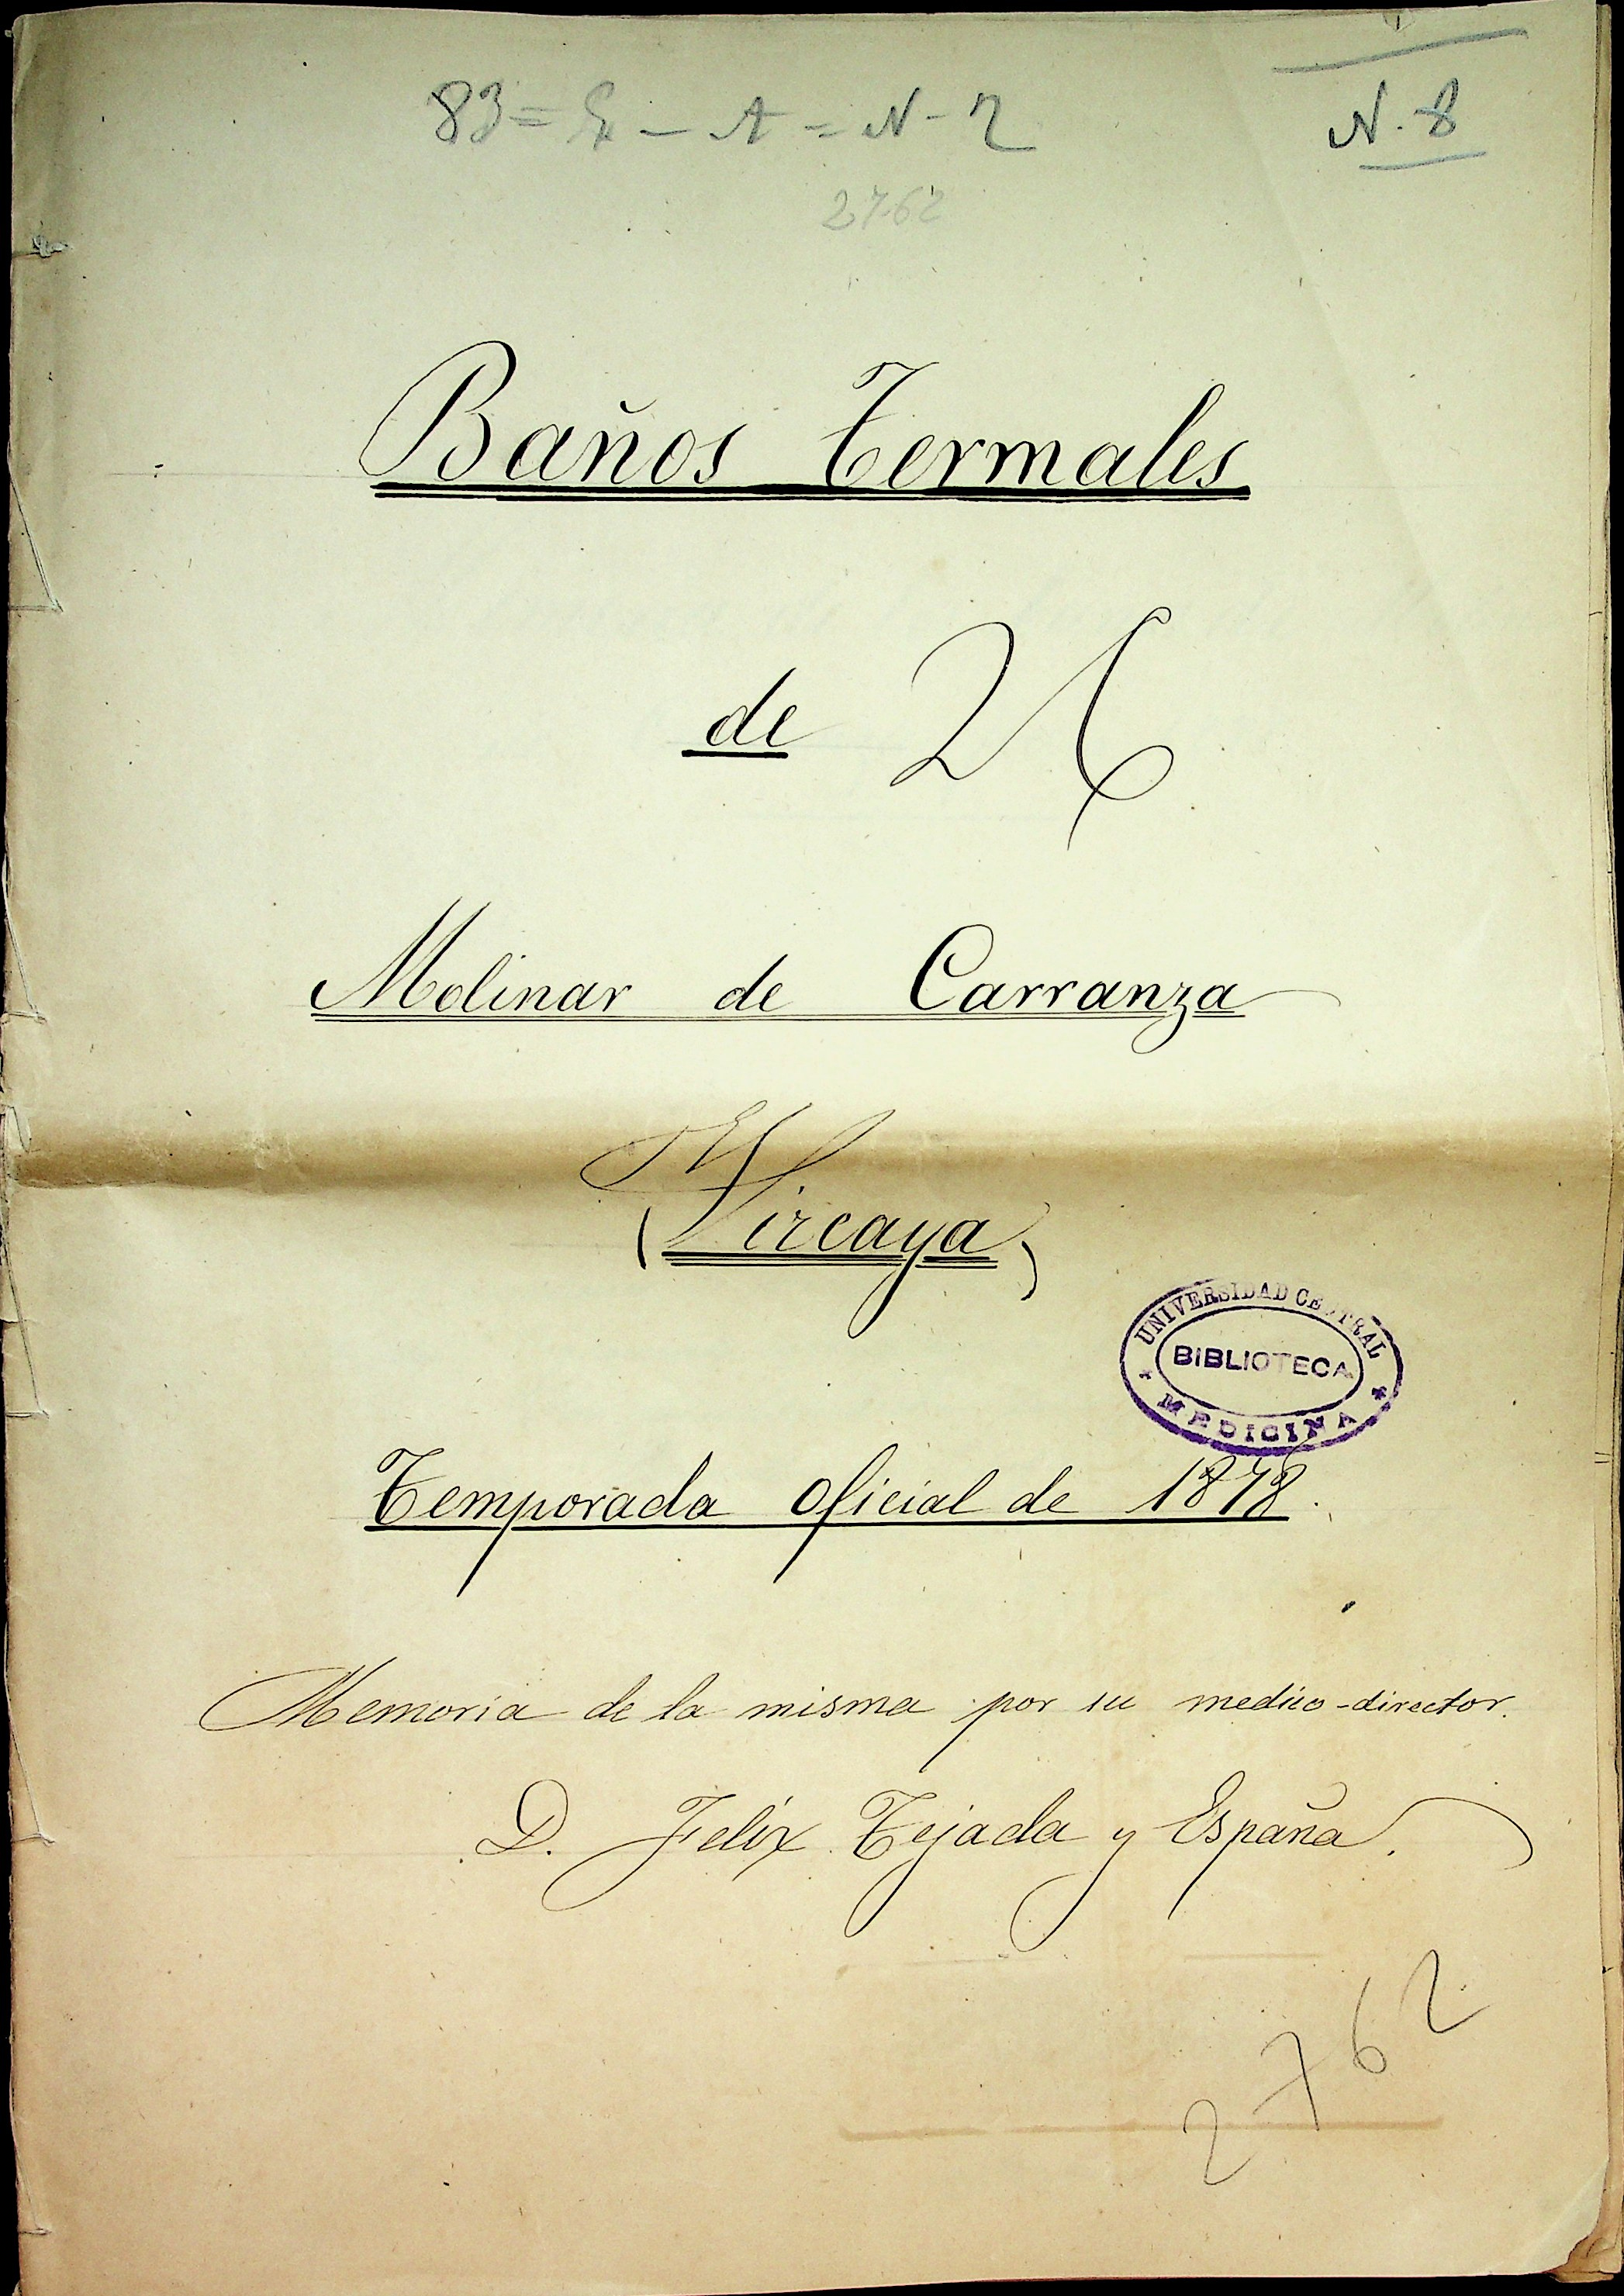 83= G - A = N-2
N. 8
2762
Baños Termales
de
Molinar de Carranza
(Vizcaya)
UNIVERSIDAD CENTRAL
BIBLIOTECA
* MEDICINA *
Temporada oficial de 1878.
Memoria de la misma por su medico-director.
D. Felix Tejada y España.
2762